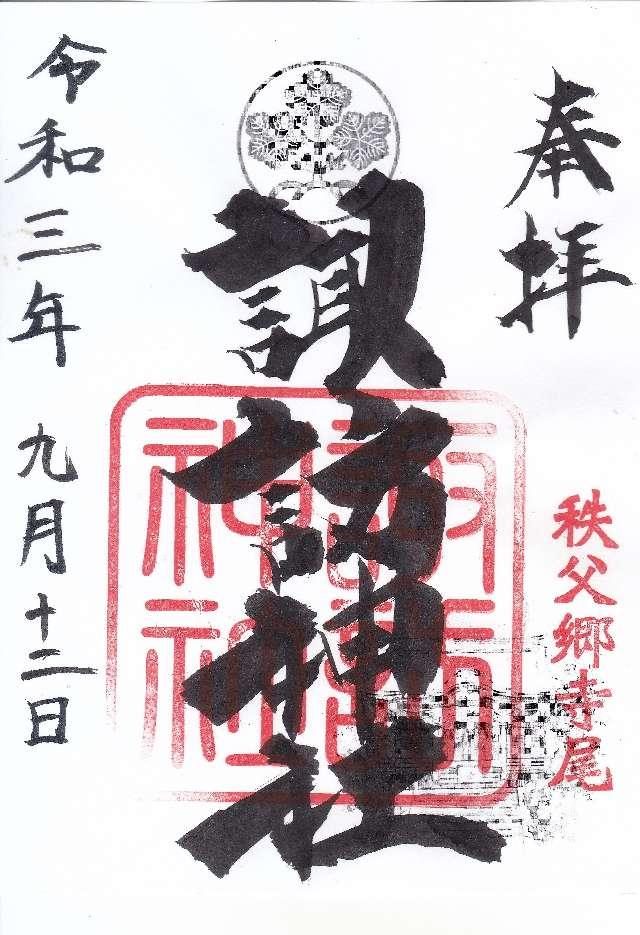 奉拝
秩父郷寺尾
諏訪神社
諏訪神社
令和三年 九月十二日